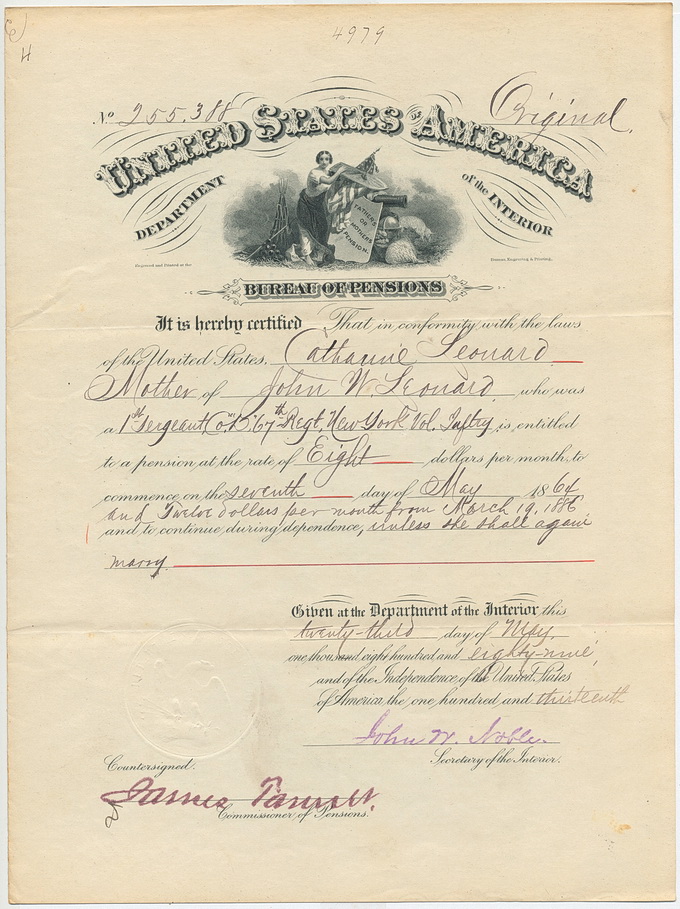 4979
H
No 255,388
Original.
UNITED STATES OF AMERICA
DEPARTMENT of the INTERIOR
FATHER'S
OR
MOTHER'S
PENSION.
Engraved and Printed at the Bureau, Engraving & Printing.
BUREAU OF PENSIONS
It is hereby certified That in conformity with the laws
of the United States, Catharine Leonard
Mother of John W. Leonard who was
a 1st Sergeant Co. "B," 67th Regt, New York Vol. Inftry, is entitled
to a pension at the rate of Eight dollars per month, to
commence on the seventh day of May 1864
and Twelve dollars per month from March 19, 1886
and to continue during dependence, unless she shall again
marry
Given at the Department of the Interior this
twenty-third day of May,
one thousand eight hundred and eighty-nine,
and of the Independence of the United States
of America the one hundred and thirteenth
John W. Noble.
Secretary of the Interior.
Countersigned.
James Tanner.
Commissioner of Pensions.